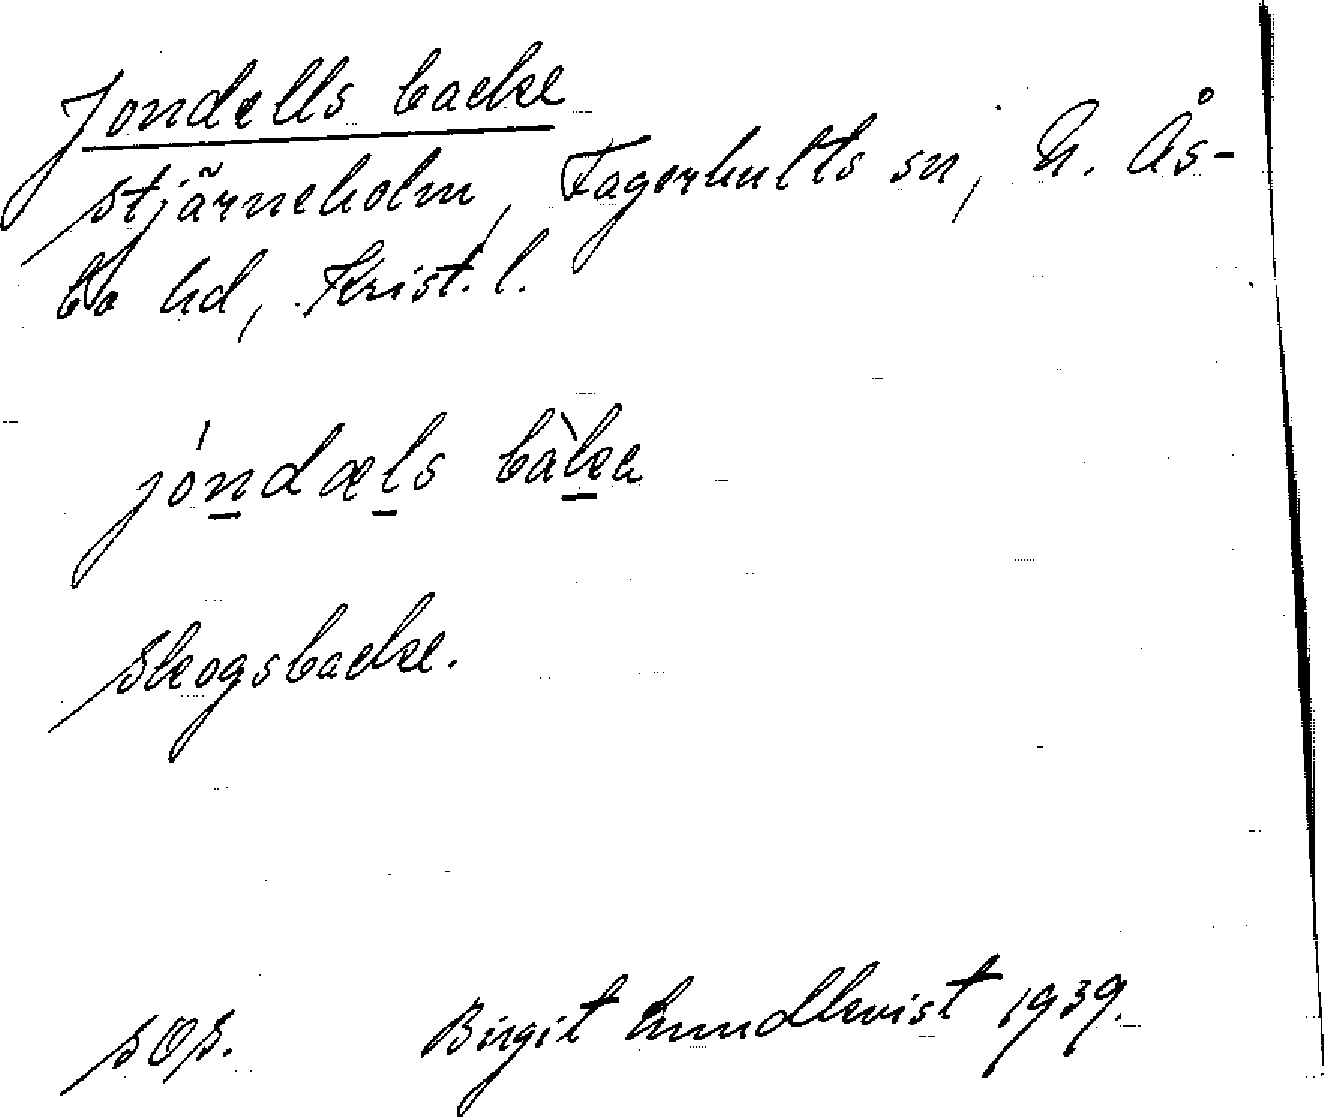 Jondells backe
Stjärneholm, Fagerhults sn, N. Ås-
bo hd, Krist. l.
jóndæls bàka
Skogsbacke.
SOS. Birgit Lundkvist 1939.